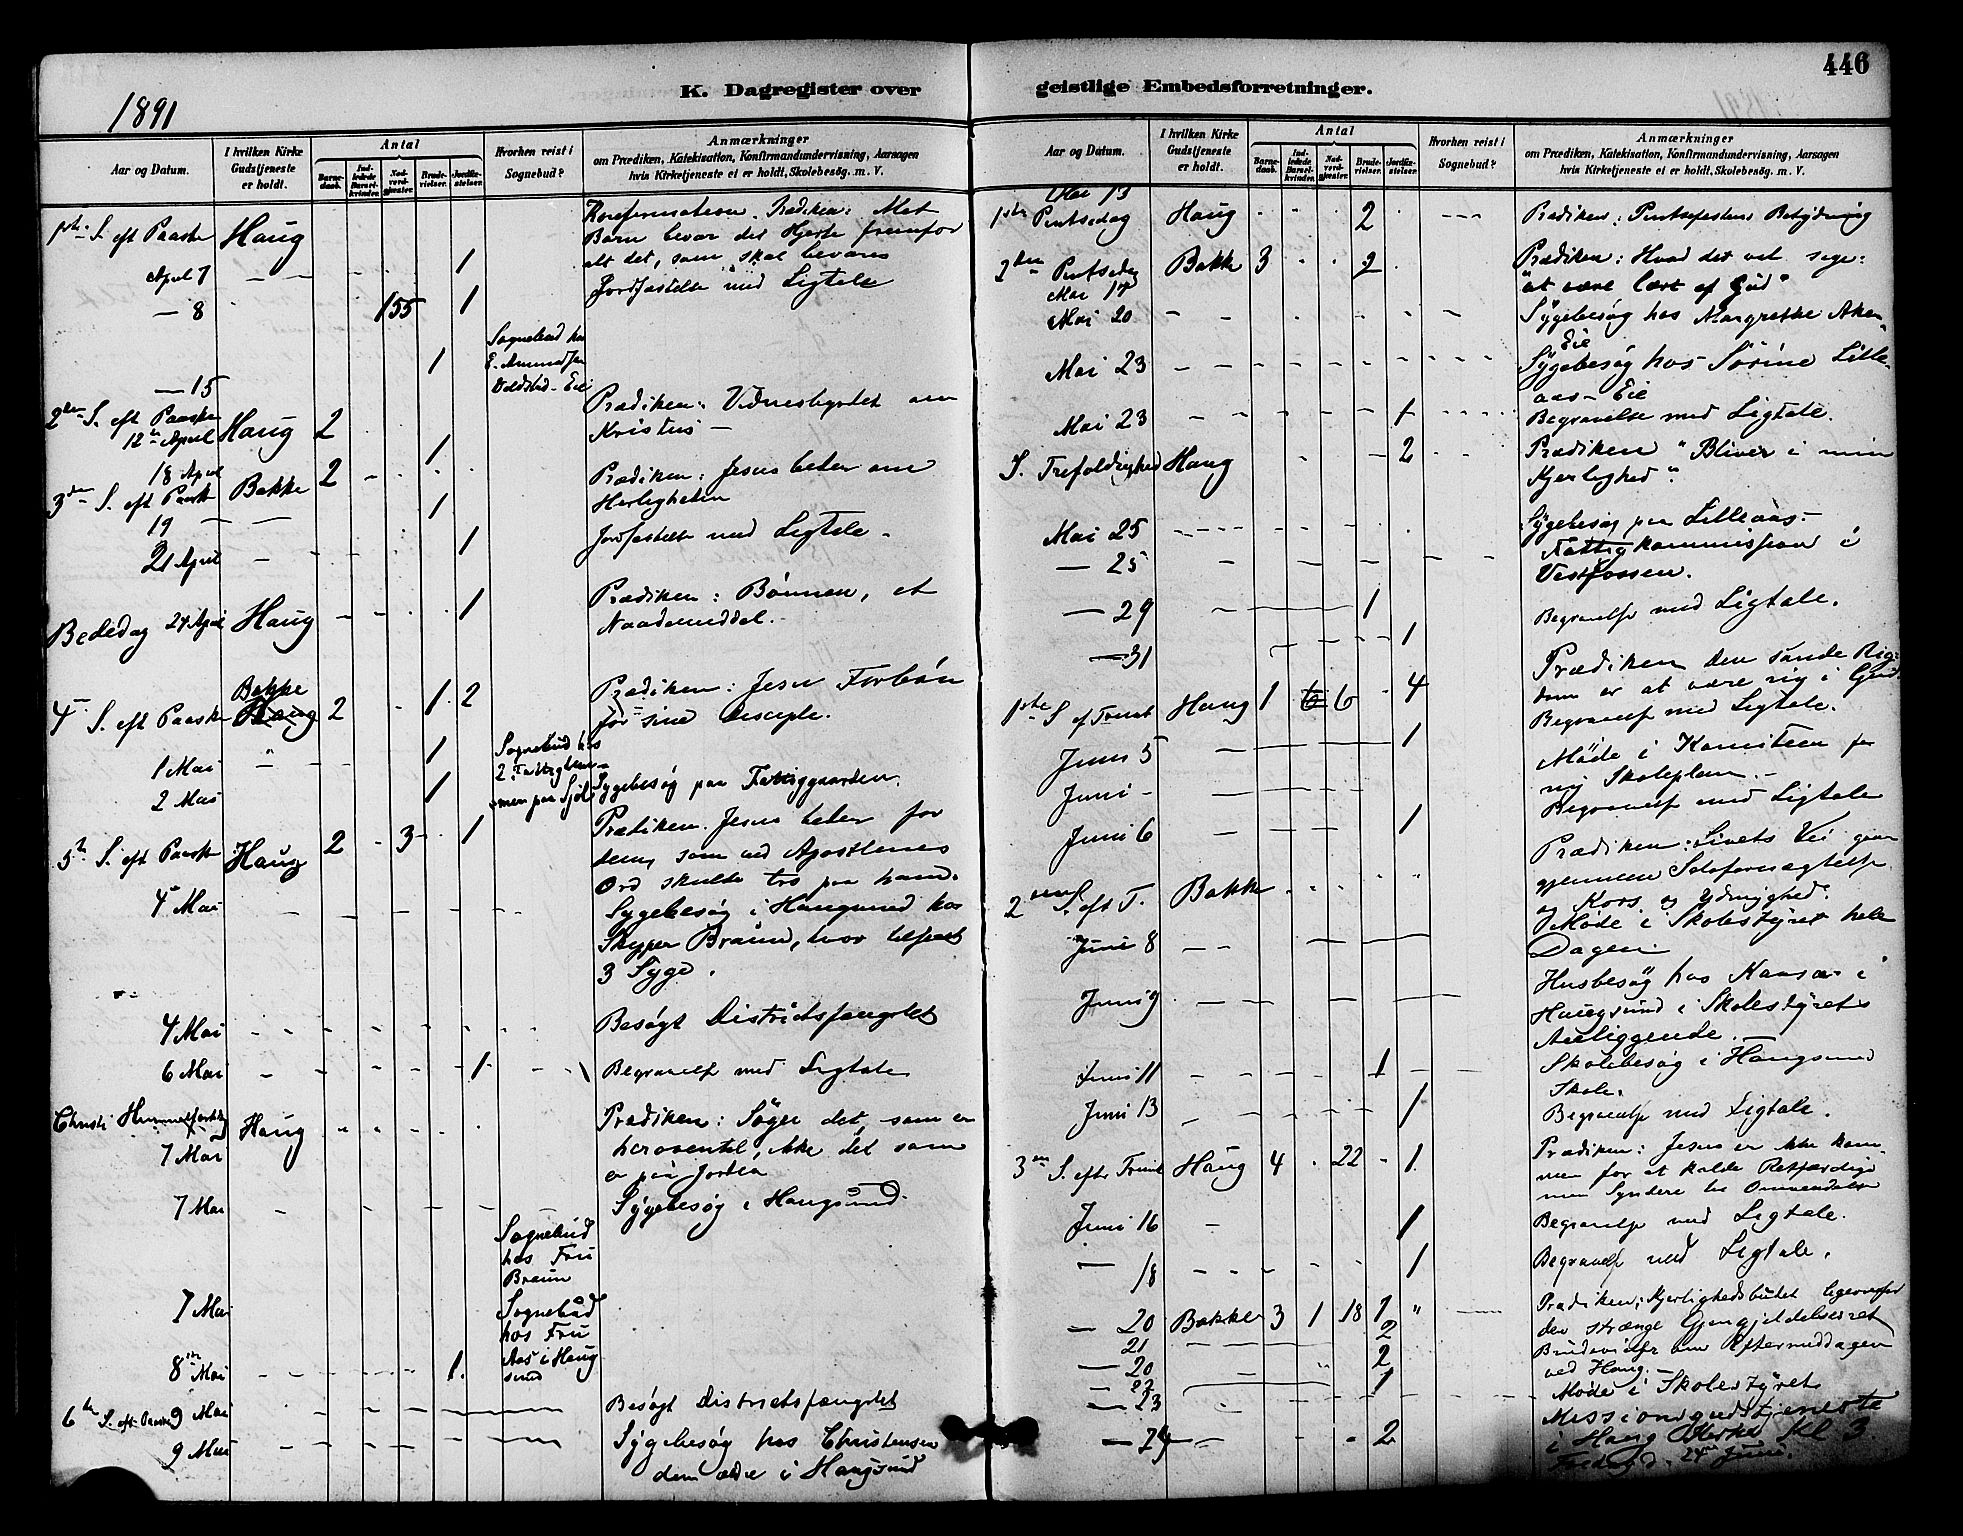 446
K. Dagregister over geistlige Embedsforretninger.
1891
Aar og Datum.
I hvilken Kirke Gudstjeneste er holdt.
Antal
Barnedaab.
Indledede Barselkvinder.
Nadverdgjæster.
Brudevielser.
Jordfæstelser.
Hvorhen reist i Sognebud?
Anmærkninger
om Prædiken, Katekisation, Konfirmandundervisning, Aarsagen
hvis Kirketjeneste ei er holdt, Skolebesøg. m. V.
1ste S. eft Paaske Haug
Konfirmation. Prædiken: Mit
Barn bevar dit Hjerte fremfor
alt det, som skal bevares
April 7 - - 1
Jordfæstelse med Ligtale
- 8 155 1
Sognebud hos
E. Amundsen
- Eie
- 15 1
2den S. eft Paaske
12te April Haug 2
Prædiken: Vidnesbyrdet om
Kristus -
18 April 1
3die S. eft Paaske Bakke 2
Prædiken: Jesus beder om
Herligheden
19 - - 1
21 April - 1
Jordfæstelse med Ligtale.
Bededag 24 April Haug 1
Prædiken: Bønnen, et
Naademiddel.
4de S. eft Paaske Bakke Haug 2 1 2
Prædiken: Jesu Forbøn
for sine Disciple.
1 Mai " 1
Sognebud hos
2 Mai 1
Sygebesøg paa Fattiggaarden.
5te S. eft Paaske Haug 2 3 1
Prædiken. Jesus beder for
dem, som ved Apostlenes
Ord skulde tro paa ham.
4de Mai
Sygebesøg i Haugsund hos
Skipper Braun, hvor tilsaaet
3 Syge.
4 Mai
Besøgt Distriktsfængslet
6 Mai 1
Begravelse med Ligtale
Christi Himmelfartsdag
7 Mai Haug
Prædiken: Søger det, som er
heroventil, ikke det som
er paa Jorden
7 Mai
Sygebesøg i Haugsund.
Sognebud
hos Fru
Braun
7 Mai
Sognebud
hos Fru
Aas i Haug
sund
8de Mai 1.
6te S. eft Paaske 9 Mai
Besøgt Distriktsfængslet
9 Mai
Sygebesøg hos Christensen
den ældre i Haugsund
Aar og Datum.
I hvilken Kirke Gudstjeneste er holdt.
Antal
Barnedaab.
Indledede Barselkvinder.
Nadverdgjæster.
Brudevielser.
Jordfæstelser.
Hvorhen reist i Sognebud?
Anmærkninger
om Prædiken, Katekisation, Konfirmandundervisning, Aarsagen
hvis Kirketjeneste ei er holdt, Skolebesøg. m. V.
1ste Pintsedag Haug 2
Prædiken: Pintsefestens Betydning
2den Pintsedag Bakke 3 2
Mai 17
Prædiken: Hvad det vil sige:
"at være lært af Gud"
Mai 20
Sygebesøg hos Margrethe Aker
Eie
Mai 23
Sygebesøg hos Sørine Lille-
aas-Eie
Mai 23 1
Begravelse med Ligtale.
S. Trefoldighed Haug 2
Prædiken "Bliver i min
Kjærlighed".
Mai 25
Sygebesøg paa Lilleaas-
- 25
Fattigkommission i
Vestfossen.
- 29 1
Begravelse med Ligtale.
- 31 1
1ste S. ef Trinit Haug 1 6 6 4
Prædiken den sande Rig-
dom er at være rig i Gud
Juni 5 1
Begravelse med Ligtale.
Juni -
Møde i Komiteen for
ny Skoleplan.-
Juni 6 1
Begravelse med Ligtale
2den S. eft T. Bakke
Prædiken: Livets Vei gaar
gjennem Selvfornægtelse
og Kors og Ydmyghed.
Juni 8
Møde i Skolestyret hele
Dagen.
Juni 9
Husbesøg hos i
Haugsund i Skolestyrets
Anliggende.
Juni 11 1
Skolebesøg i Haugsund
Skole.
Juni 13 1
Begravelse med Ligtale.
3die S. efter Trinit Haug 4 22 1
Prædiken: Jesus er ikke kom-
men for at kalde Retfærdige
men Syndere til Omvendelse
Juni 16 1
Begravelse med Ligtale.
- 18 1
Begravelse med Ligtale.
- 20 Bakke 3 1 18 1 "
Prædiken: Kjærlighedsbudet ligeoverfor
den strænge Gjengjældelsesret
21 2
Brudevielse om Eftermiddagen
ved Haug.
- 20 2
- 22 1
Møde i Skolestyret
- 23
Missionsgudstjeneste
- 24 2
i Haug Kirke Kl 3
24de Juni.